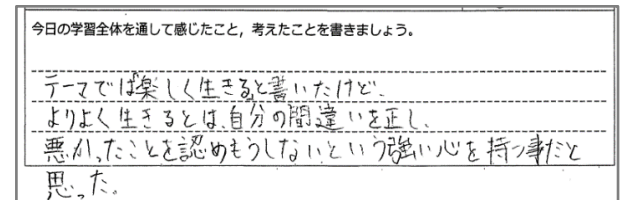 今日の学習全体を通して感じたこと，考えたことを書きましょう。
テーマでは楽しく生きると書いたけど、
よりよく生きるとは、自分の間違いを正し、
悪かったことを認めもうしないという強い心を持つ事だと
思った。